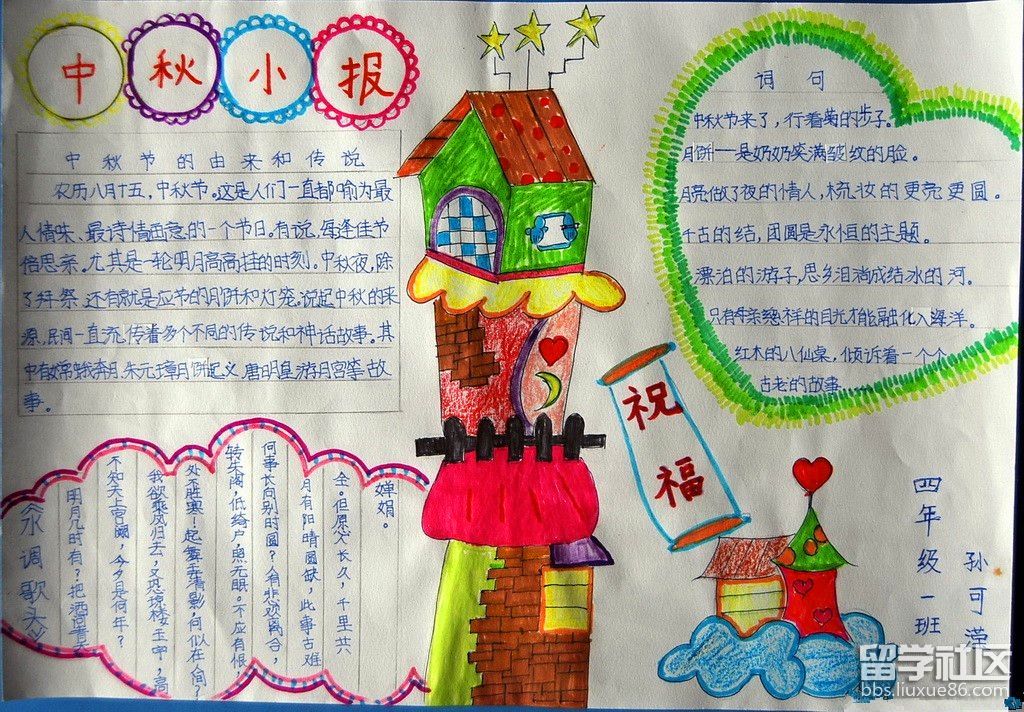 中秋小报
中秋节的由来和传说
农历八月十五，中秋节。这是人们一直都喻为最
人情味、最诗情画意的一个节日。有说，每逢佳节
倍思亲。尤其是一轮明月高高挂的时刻。中秋夜，除
了拜祭，还有就是应节的月饼和灯笼。说起中秋的来
源，民间一直流传着多个不同的传说和神话故事。其
中有嫦娥奔月、朱元璋月饼起义、唐明皇游月宫等故
事。
词句
中秋节来了，行着菊的步子。
月饼——是奶奶笑满皱纹的脸。
月亮做了夜的情人，梳妆的更亮更圆。
千古的结，团圆是永恒的主题。
漂泊的游子，思乡泪淌成结冰的河。
只有母亲慈祥的目光才能融化入海洋。
红木的八仙桌，倾诉着一个个
古老的故事……
祝福
水调歌头
明月几时有？把酒问青天
不知天上宫阙，今夕是何年？
我欲乘风归去，又恐琼楼玉宇，高
处不胜寒！起舞弄清影，何似在人间？
转朱阁，低绮户，照无眠。不应有恨，
何事长向别时圆？人有悲欢离合，
月有阳晴圆缺，此事古难
全。但愿人长久，千里共
婵娟。
四年级一班
孙可滢
留学社区
bbs.liuxue86.com